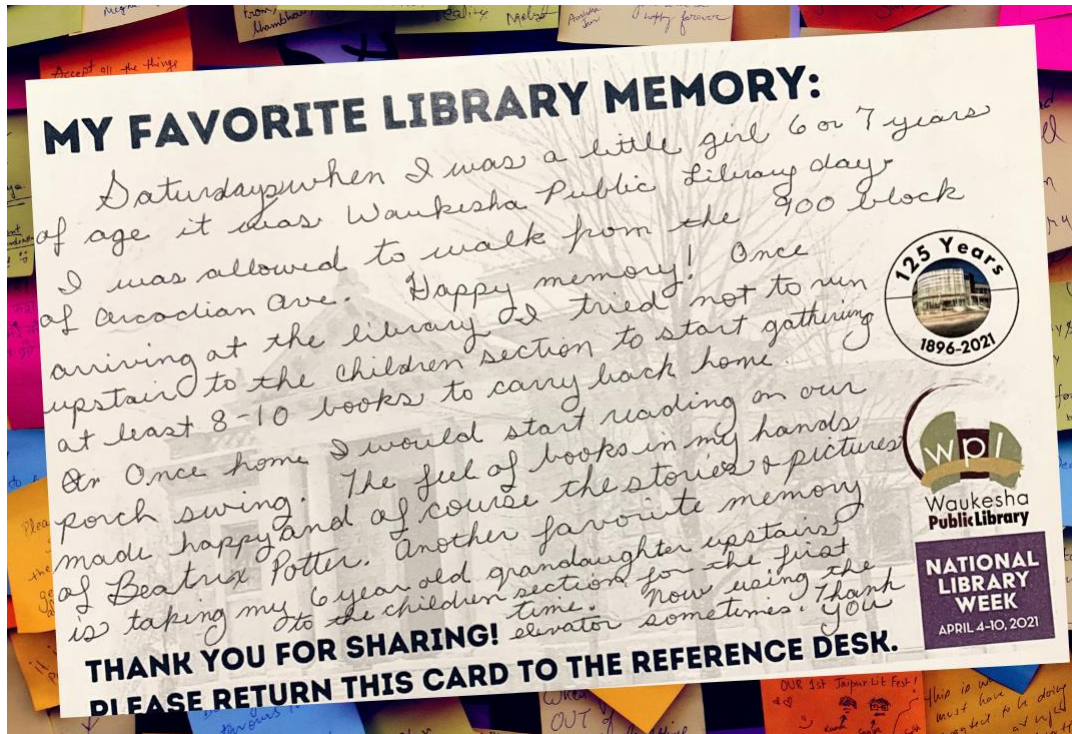 Accept all the things
MY FAVORITE LIBRARY MEMORY:
Saturdays when I was a little girl 6 or 7 years
of age it was Waukesha Public Library day.
I was allowed to walk from the 900 block
of Arcadian Ave. Happy memory! Once
arriving at the library I tried not to run
upstair to the children section to start gathering
at least 8-10 books to carry back home.
Once home I would start reading on our
porch swing. The feel of books in my hands
made happy and of course the stories & pictures
of Beatrix Potter. Another favorite memory
is taking my 6 year old grandaughter upstairs
to the children section for the first
time. Now using the
elevator sometimes. Thank
you
THANK YOU FOR SHARING!
PLEASE RETURN THIS CARD TO THE REFERENCE DESK.
125 Years
1896-2021
wpl
Waukesha
Public Library
NATIONAL
LIBRARY
WEEK
APRIL 4-10, 2021
OUT OF
OUR 1st Jaipur Lit Fest!
this is
must have
to be doing